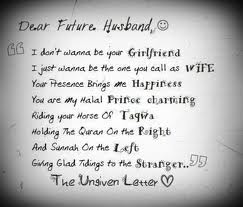 Dear Future Husband,☺
"I don't wanna be your Girlfriend
I just wanna be the one you call as WIFE
Your Presence Brings me Happiness
You are my Halal Prince charming
Riding your Horse Of Taqwa
Holding The Quran On the Right
And Sunnah On the Left
Giving Glad Tidings to the Stranger.."
The Ungiven Letter ♡